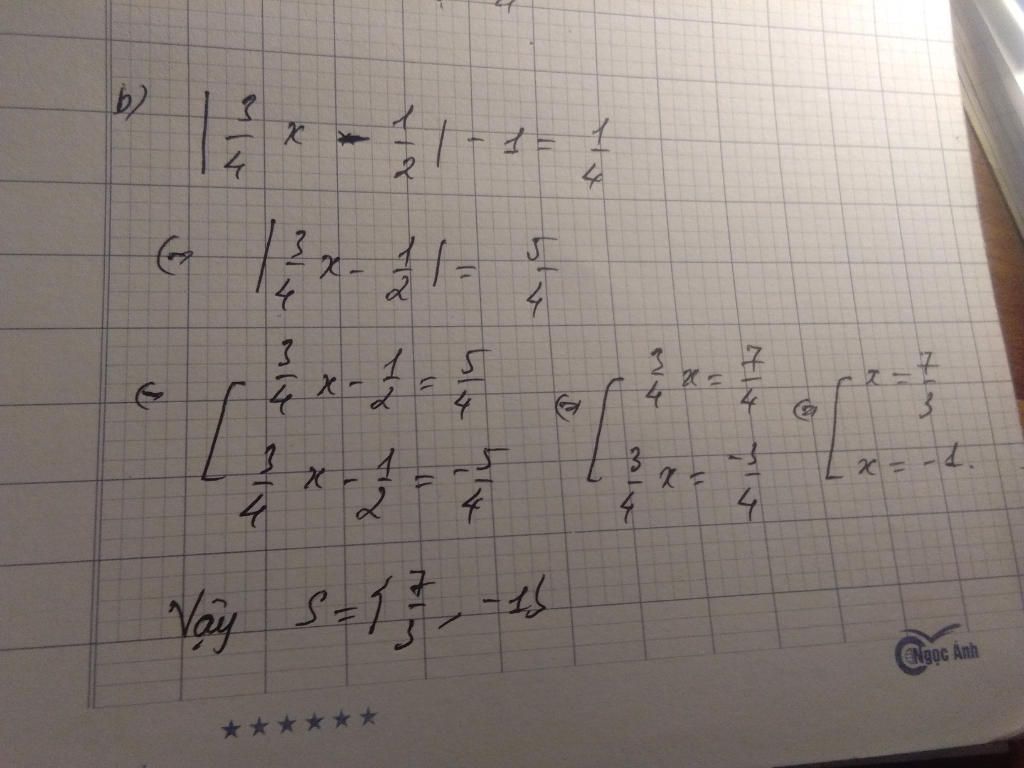 b) |3/4 x - 1/2| - 1 = 1/4
⇔ |3/4 x - 1/2| = 5/4
⇔ [ 3/4 x - 1/2 = 5/4 ⇔ [ 3/4 x = 7/4 ⇔ [ x = 7/3
3/4 x - 1/2 = -5/4 3/4 x = -3/4 x = -1.
Vậy S = { 7/3, -1}
Ngọc Ánh